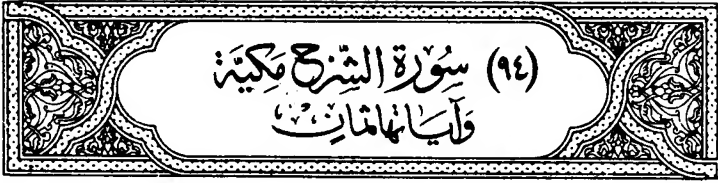 (٩٤) سُورَة الشَّرْح مَكِيَّة
وَآيَاتهَا ثَمَان